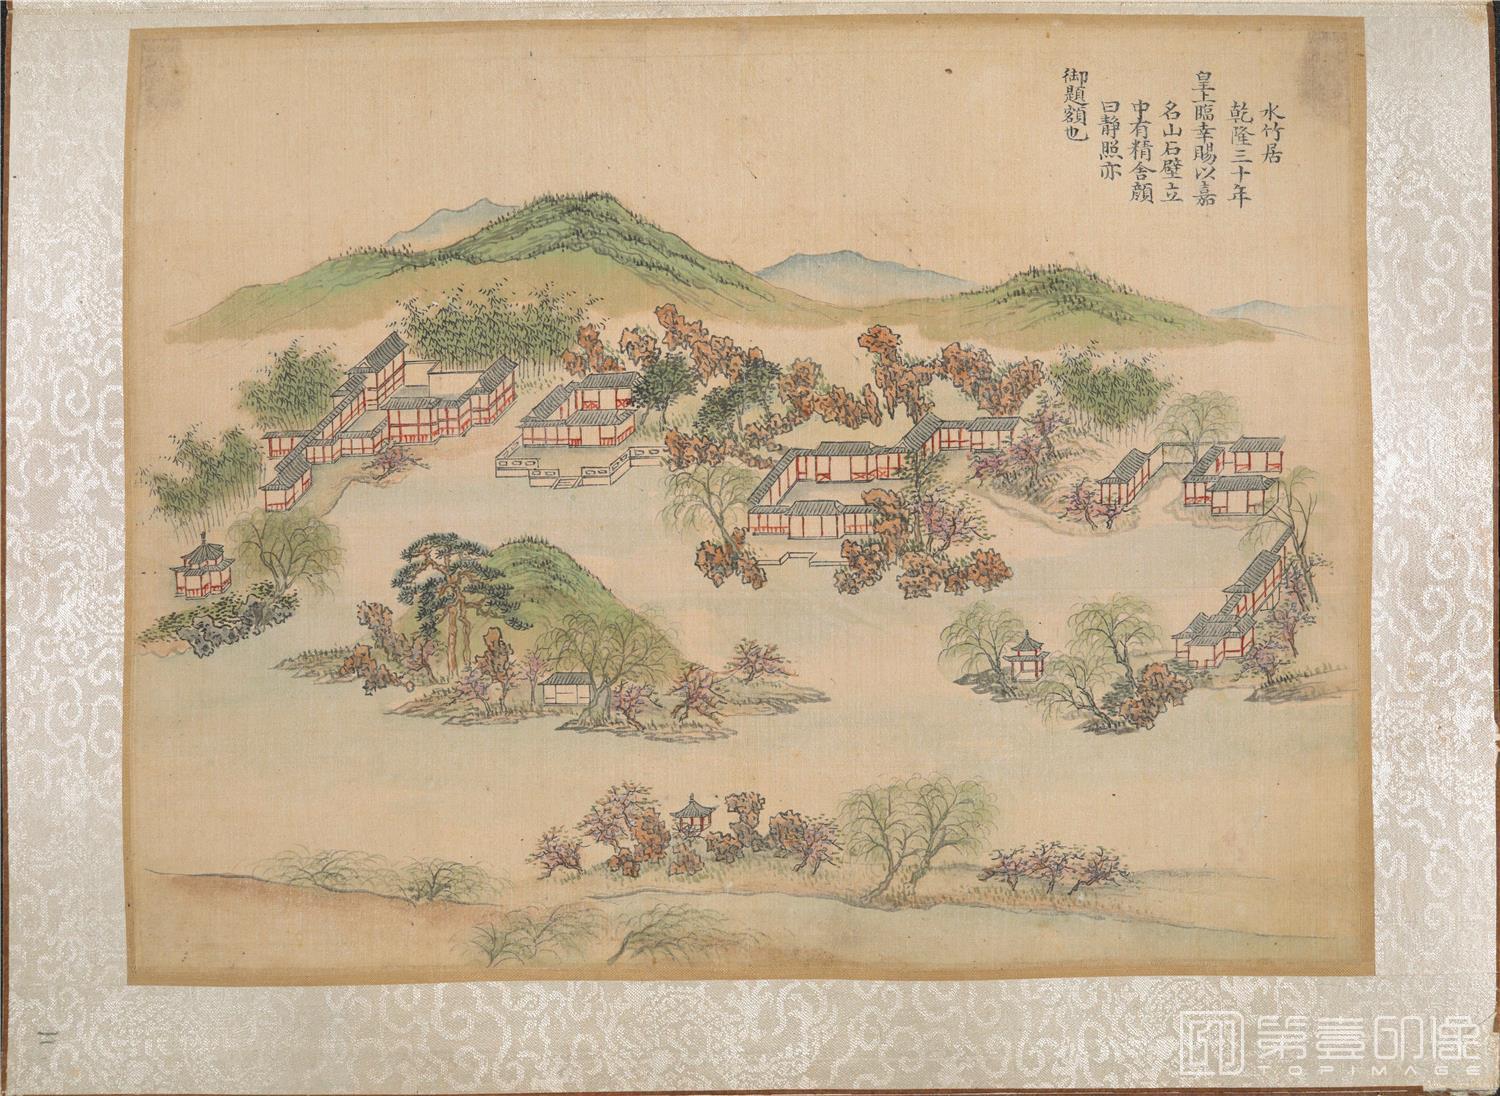 水竹居
乾隆三十年
皇上臨幸賜以嘉
名山石壁立
中有精舍顔
曰靜照亦
御題額也
第壹印像
TOPIMAGE